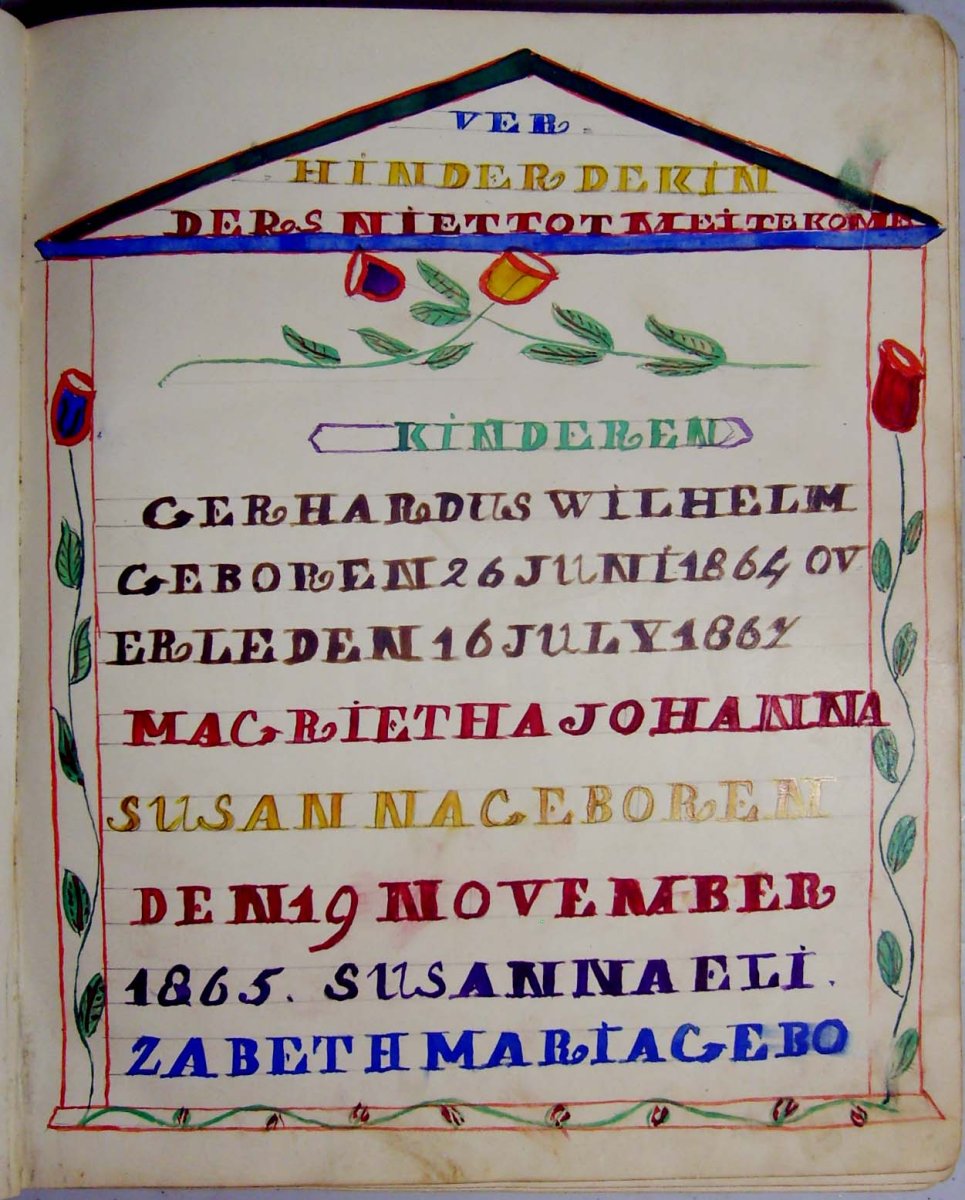 VER
HINDER DE KIN
DERS NIET TOT MEI TE KOME
KINDEREN
GERHARDUS WILHELM
GEBOREN 26 JUNI 1864 OV
ERLEDEN 16 JULY
MAGRIETHA JOHANNA
SUSANNA GEBOREN
DEN 19 NOVEMBER
1865. SUSANNA ELI.
ZABETH MARIA GEBO